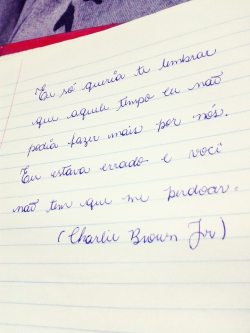 Eu só queria te lembrar
que aquele tempo eu não
podia fazer mais por nós.
Eu estava errado e você
não tem que me perdoar.
(Charlie Brown Jr)